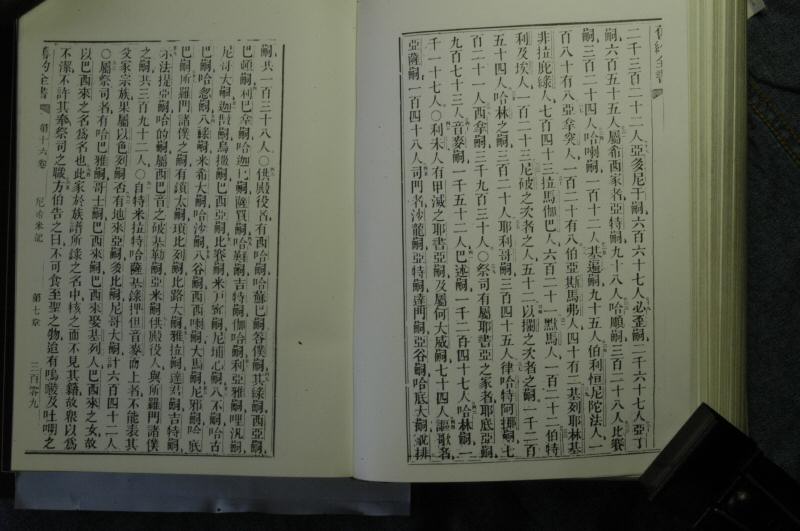 舊約全書
二千三百二十二人亞多尼干嗣六百六十七人必歪嗣二千六十七人亞丁
嗣六百五十五人屬希西家者亞特嗣九十八人哈順嗣三百二十八人比賽
嗣三百二十四人哈喇嗣一百十二人基遍嗣九十五人伯利恒尼陀法人一
百八十有八亞拿突人一百二十有八伯亞斯馬弗人四十有二基列耶林基
非拉庇錄人七百四十三拉馬伽巴人六百二十一默馬人一百二十二伯特
利及埃人一百二十三尼破之次者之人五十二以攔之次者之嗣一千二百
五十四人哈林之嗣三百二十人耶利哥嗣三百四十五人律哈特阿挪嗣七
百二十一人西拿嗣三千九百三十人○祭司有屬耶書亞之家名耶底亞嗣
九百七十三人音麥嗣一千五十二人巴述嗣一千二百四十七人哈林嗣一
千一十七人○利未人有甲減之耶書亞嗣及屬何大威嗣七十四人謳歌者
亞薩嗣一百四十八人司門者沙龍嗣亞特嗣達門嗣亞谷嗣哈底大嗣說排
嗣共一百三十八人○供殿役者有西哈嗣哈蘇巴嗣答僕嗣其綠嗣西亞嗣
巴頓嗣利巴拿嗣哈迦巴嗣薩買嗣哈難嗣吉特嗣伽哈嗣利亞雅嗣哩汎嗣
尼哥大嗣迦散嗣烏撒嗣巴西亞嗣比賽嗣米戶甯嗣尼埔心嗣八不嗣哈古
巴嗣哈忽嗣八綠嗣米希大嗣哈沙嗣八谷嗣西西喇嗣大馬嗣尼邪嗣哈底
法嗣所羅門諸僕之嗣有瑣太嗣瑣比列嗣比路大嗣雅拉嗣達昆嗣吉特嗣
示法提亞嗣哈的嗣屬西巴音之破基勒嗣亞米嗣供殿役人與所羅門諸僕
之嗣共三百九十二人○自特米拉特哈薩基綠押但音麥而上者不能表其
父家宗族果屬以色列嗣否有地來亞嗣多比嗣尼哥大嗣計六百四十二人
○屬祭司者有哈巴雅嗣哥士嗣巴西來嗣巴西來娶基列人巴西來之女故
以巴西來之名爲名也此家於族譜所錄之名中核之而不見其籍故衆以爲
不潔不許其奉祭司之職方伯告之曰不可食至聖之物迨有烏陵及吐明之
舊約全書 第十六卷 尼希米記 第七章 三百零九